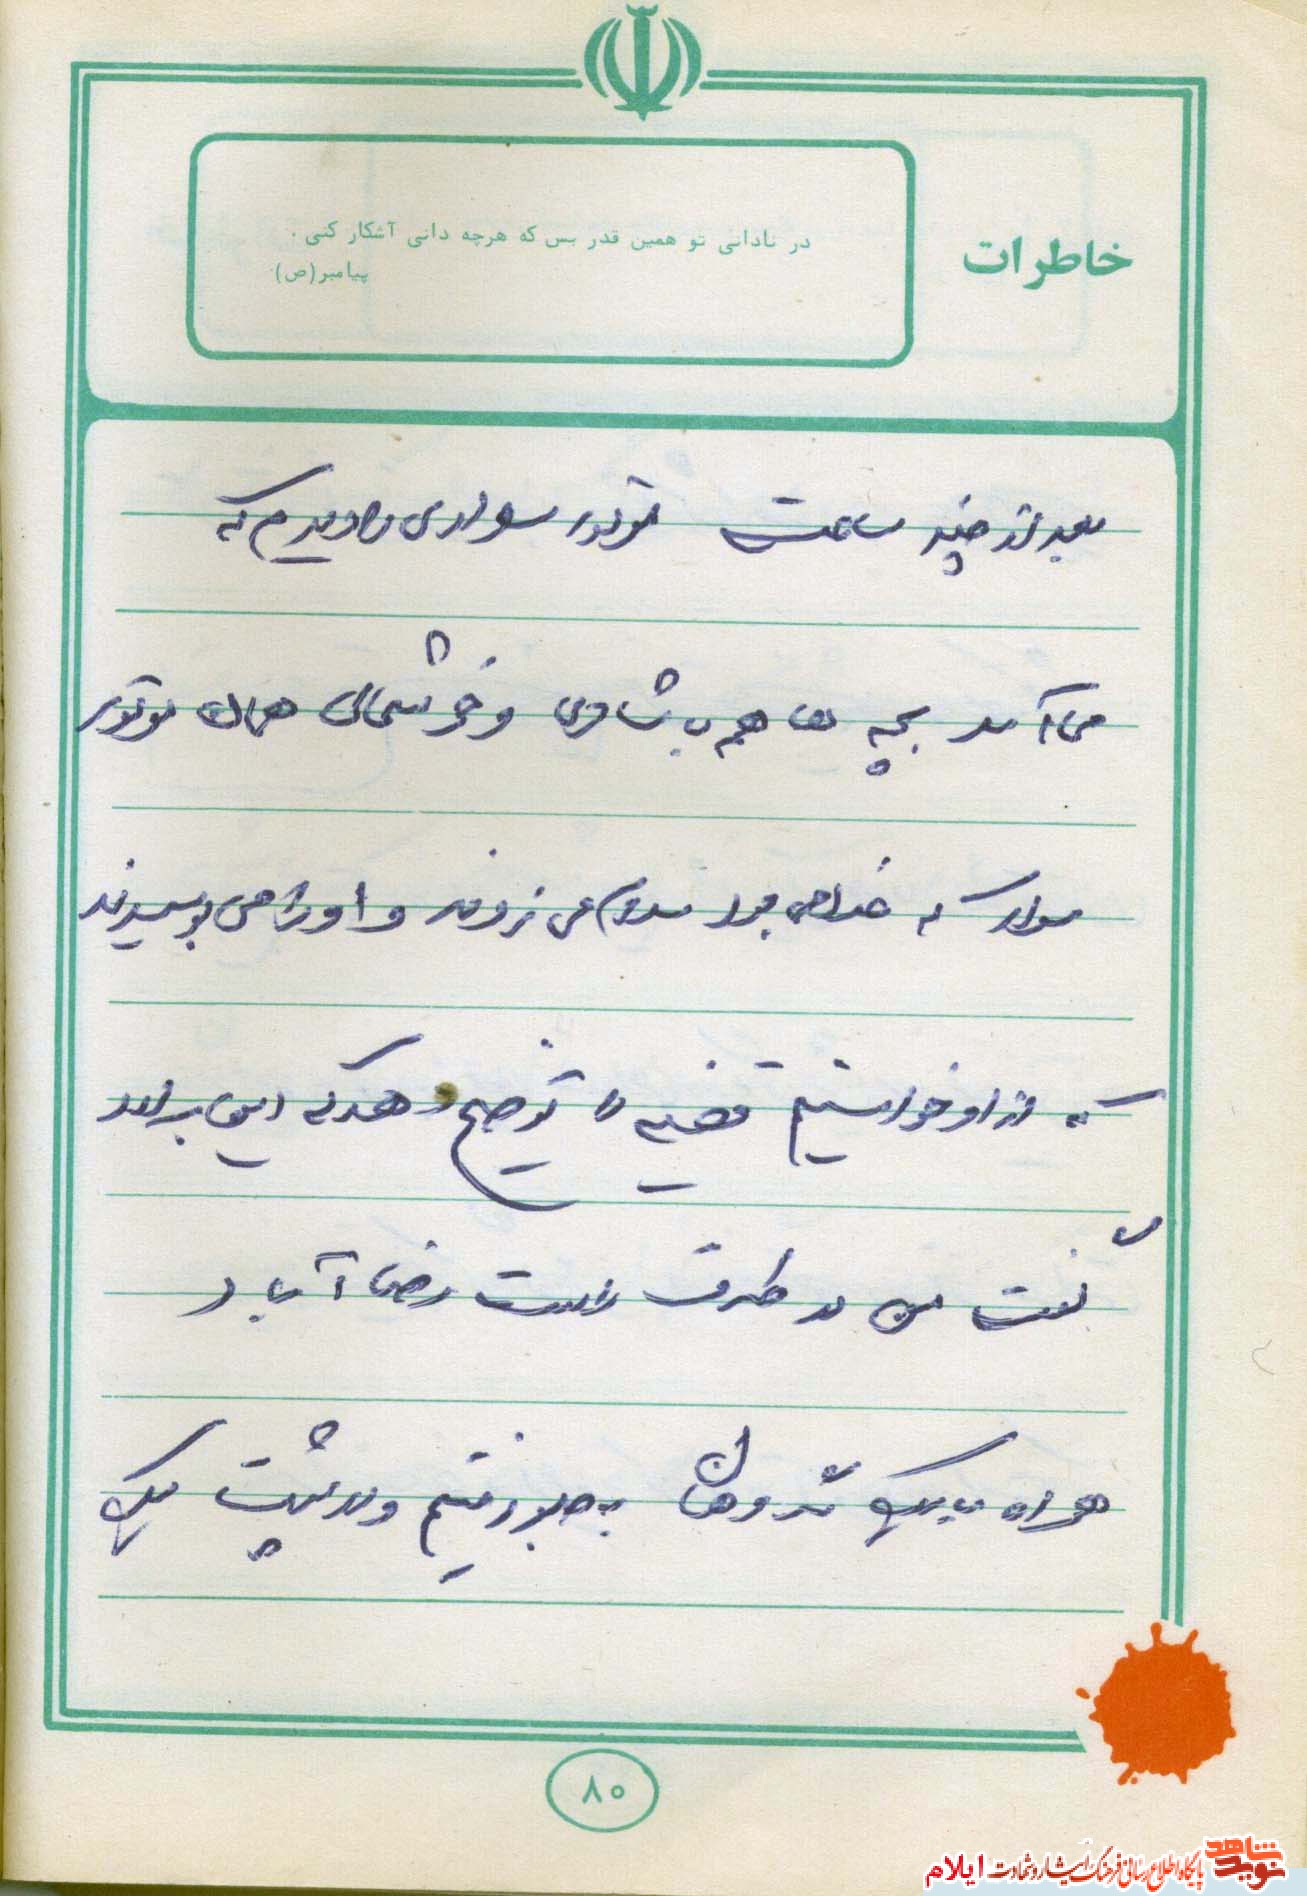 خاطرات
در نادانی تو همین قدر بس که هرچه دانی آشکار کنی .
پیامبر(ص)
بعد از چند ساعت موتور سواری را دیدم که
می آمد بچه ها هم با شادی و خوشحالی همان موتور
سوار که خدامی بود سلام می زدند و او را می بوسیدند
که از او خواستیم قضیه را توضیح دهد که این برادر
گفت من در طرف راست رضا آباد
همراه با یک گروهان به جلو رفتیم و در پشت یک
۸۰
نوید شاهد پایگاه اطلاع رسانی فرهنگ ایثار و شهادت ایلام